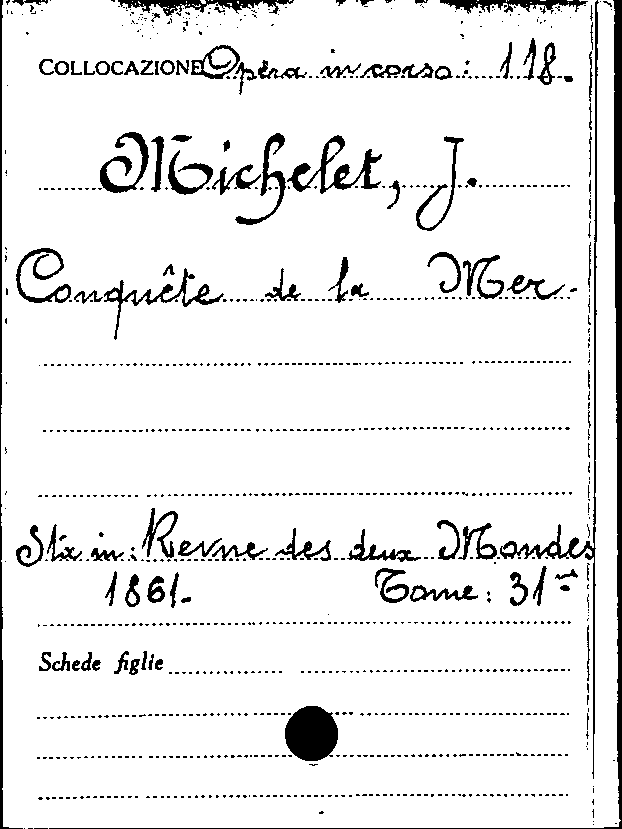 COLLOCAZIONE Opera in corso: 118.
Michelet, J.
Conquête de la Mer.
Sta in: Revue des deux Mondes
1861. Tome: 31
Schede figlie